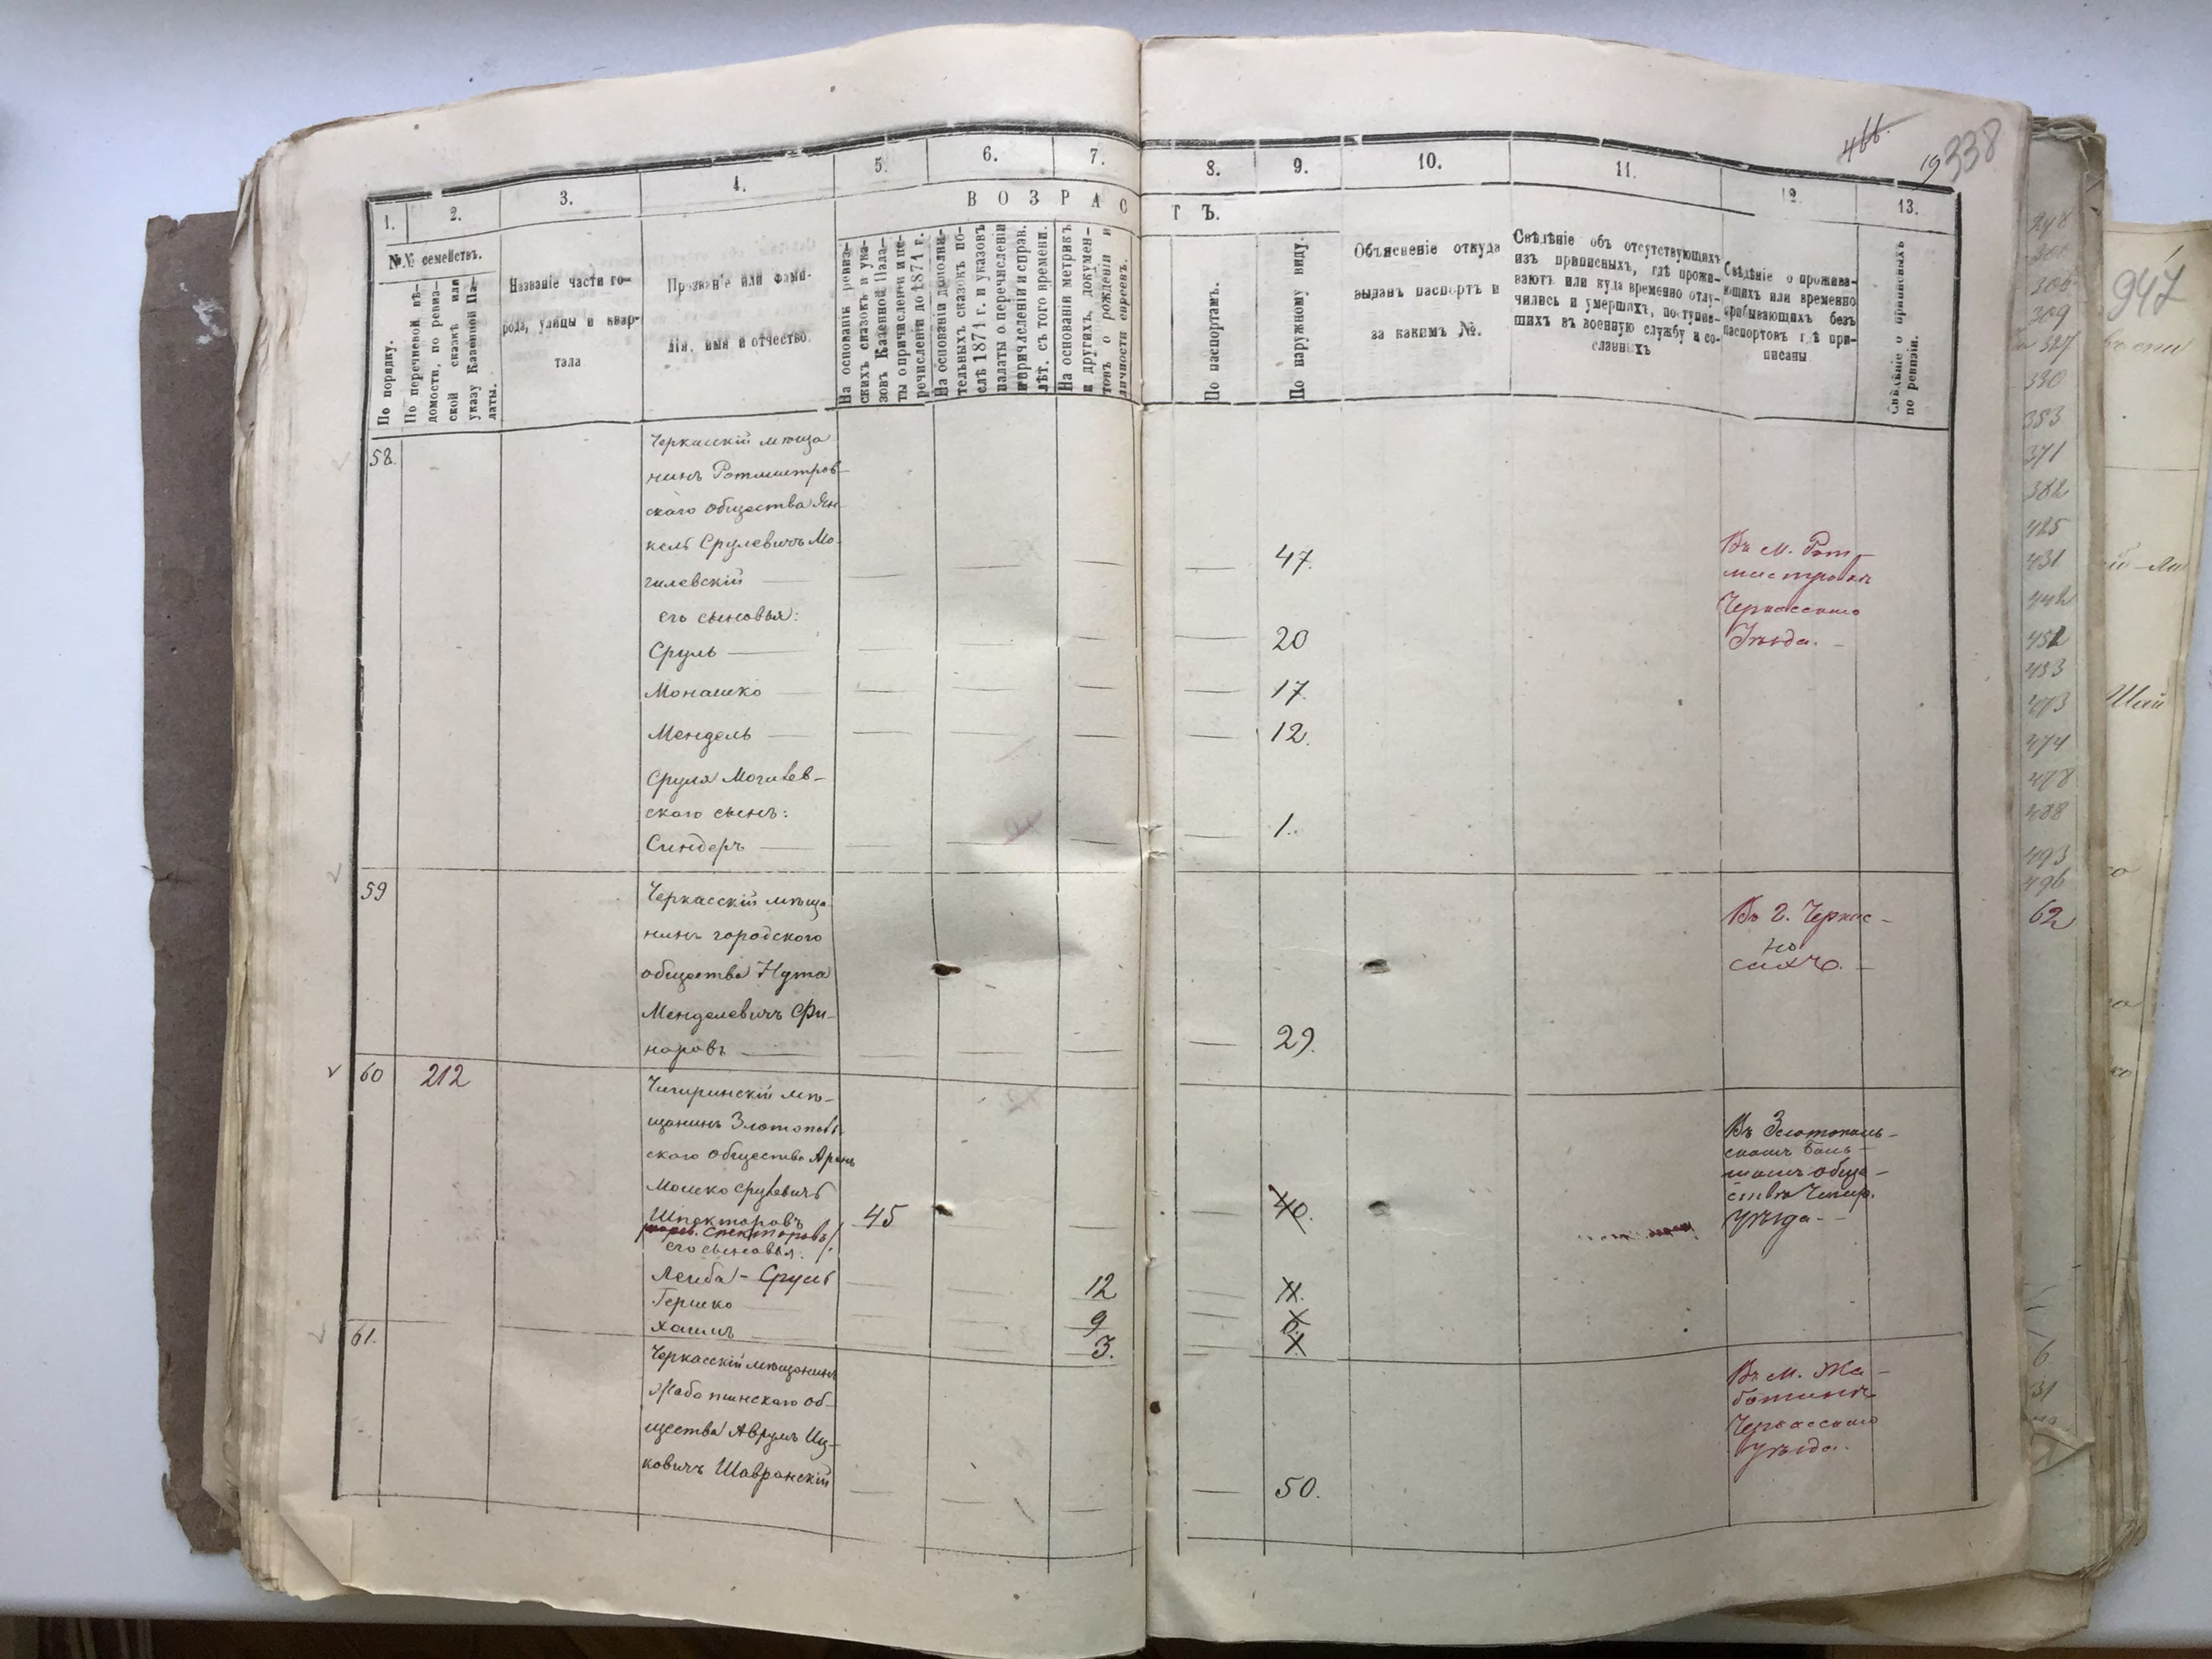 466.
19
338
1.
2.
3.
4.
5.
6.
7.
8.
9.
10.
11.
12.
13.
ВОЗРАС
ТЪ.
№№ семействъ.
По порядку.
По перечневой вѣ-
домости, по ревиз-
ской сказкѣ или
указу Казенной Па-
латы.
Названіе части го-
рода, улицы и квар-
тала
Прозваніе или фами-
лія, имя и отчество.
На основаніи ревиз-
скихъ сказокъ и ука-
зовъ Казенной Пала-
ты о причисленіи и пе-
речисленіи до 1871 г.
На основаніи дополни-
тельныхъ сказокъ по-
слѣ 1871 г. и указовъ
палаты о перечисленіи
и причисленіи и справ.
лѣт. съ того времени.
На основаніи метрикъ
и другихъ, докумен-
товъ о рожденіи и
личности евреевъ.
По паспортамъ.
По наружному виду.
Объясненіе откуда
выданъ паспортъ и
за какимъ №.
Свѣдѣніе объ отсутствующихъ
изъ приписныхъ, гдѣ прожи-
ваютъ или куда временно отлу-
чились и умершихъ, поступив-
шихъ въ военную службу и со-
сланныхъ
Свѣдѣніе о прожива-
ющихъ или временно
прибывающихъ безъ
паспортовъ гдѣ при-
писаны
Свѣдѣніе о приписныхъ
по ревизіи.
58.
Черкасскій мѣща
нинъ Ротмистров-
скаго общества Ян-
кель Срулевичъ Мо-
гилевскій
47.
его сыновья:
Сруль
20
Монашко
17.
Мендель
12.
Сруля Могилев-
скаго сынъ:
Синдеръ
1.
Въ м. Рот-
мистровкѣ
Черкасскаго
Уѣзда.
59
Черкасскій мѣща
нинъ городского
общества Нута
Менделевичъ Фи-
наровъ
29.
Въ г. Черкас-
сахъ.
60
212
Чигиринскій мѣ-
щанинъ Златополь
скаго общества Аронъ
Мошко Срулевичъ
Шпекторовъ
45
40.
Спекторовъ/
его сыновья:
Лейба-Сруль
12
11.
Гершко
9
Хаимъ
3.
Въ Златополь-
скомъ
общe-
ствѣ Чигир.
уѣзда
61.
Черкасскій мѣщанинъ
Жаботинскаго об-
щества Аврумъ Иц-
ковичъ Шавранскій
50.
Въ м. Жа-
ботинѣ
Черкасскаго
уѣзда.
947
309
330
353
371
382
425
431
442
452
453
473
474
478
488
493
496
62
6
31
Шай